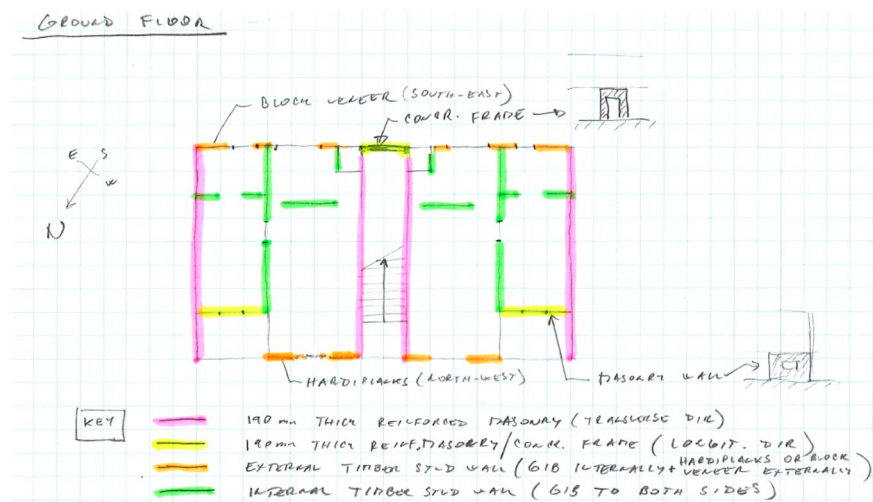 GROUND FLOOR
BLOCK VENEER (SOUTH-EAST)
CONCR. FRAME
E S
W
N
HARDIPLANKS (NORTH-WEST)
MASONRY WALL
CT
KEY
190 mm THICK REINFORCED MASONRY (TRANSVERSE DIR)
190mm THICK REINF. MASONRY/CONCR. FRAME (LONGIT. DIR)
EXTERNAL TIMBER STUD WALL (GIB INTERNALLY + HARDIPLANKS OR BLOCK VENEER EXTERNALLY)
INTERNAL TIMBER STUD WALL (GIB TO BOTH SIDES)